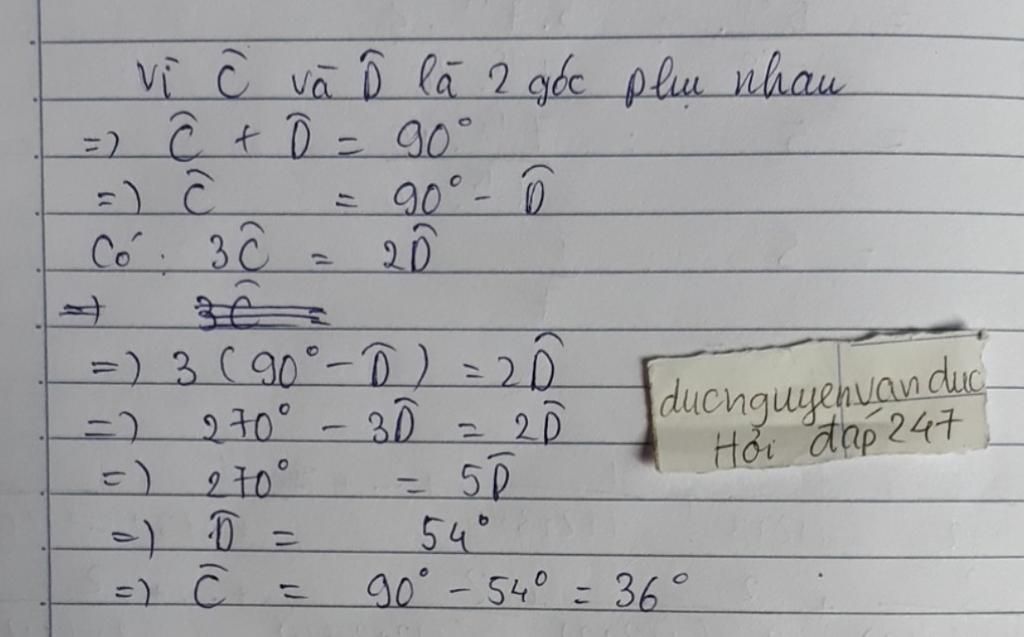 Vì Ĉ và D̂ là 2 góc phụ nhau
=> Ĉ + D̂ = 90°
=> Ĉ = 90° - D̂
Có: 3Ĉ = 2D̂
=> 3Ĉ =
=> 3(90° - D̂) = 2D̂
=> 270° - 3D̂ = 2D̂
=> 270° = 5D̂
=> D̂ = 54°
=> Ĉ = 90° - 54° = 36°
ducnguyenvanduc
Hỏi đáp 247